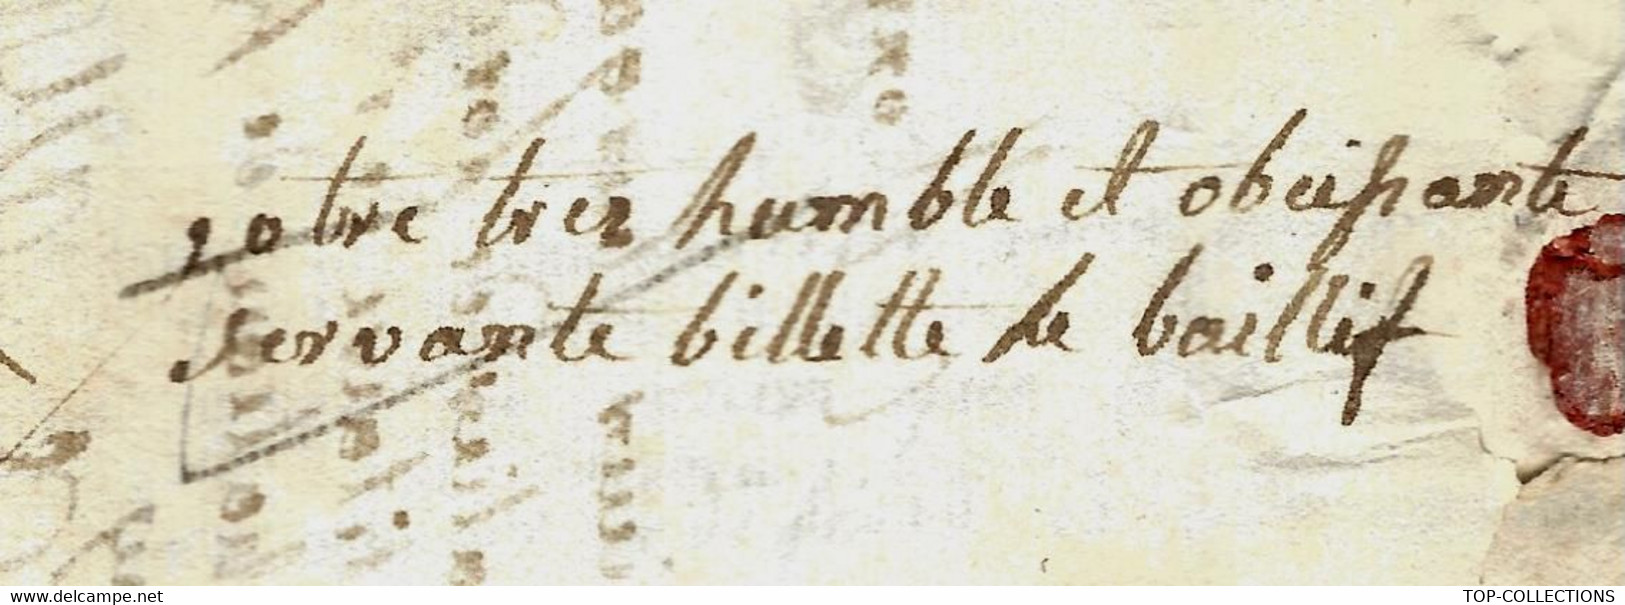 votre tres humble et obeissante
servante billette le baillif
www.delcampe.net
TOP-COLLECTIONS